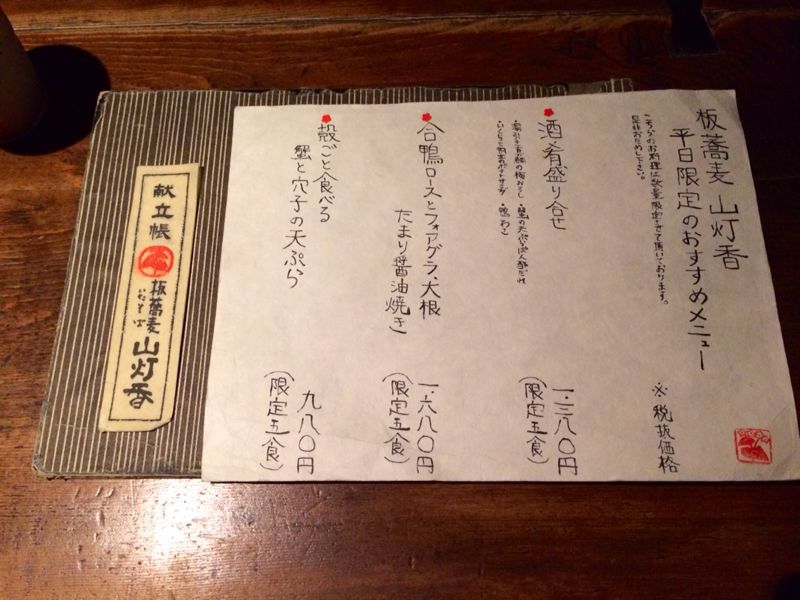 板蕎麦 山灯香
平日限定のおすすめメニュー
※税抜価格
こちらのお料理は数量限定にさせて頂いております。
是非おためし下さい。
酒肴盛り合せ
一.三八〇円
(限定五食)
合鴨ロースとフォアグラ・大根
たまり醤油焼き
一.六八〇円
(限定五食)
殻ごと食べる
蟹と穴子の天ぷら
九八〇円
(限定五食)
献立帳
板蕎麦
いたそば
山灯香